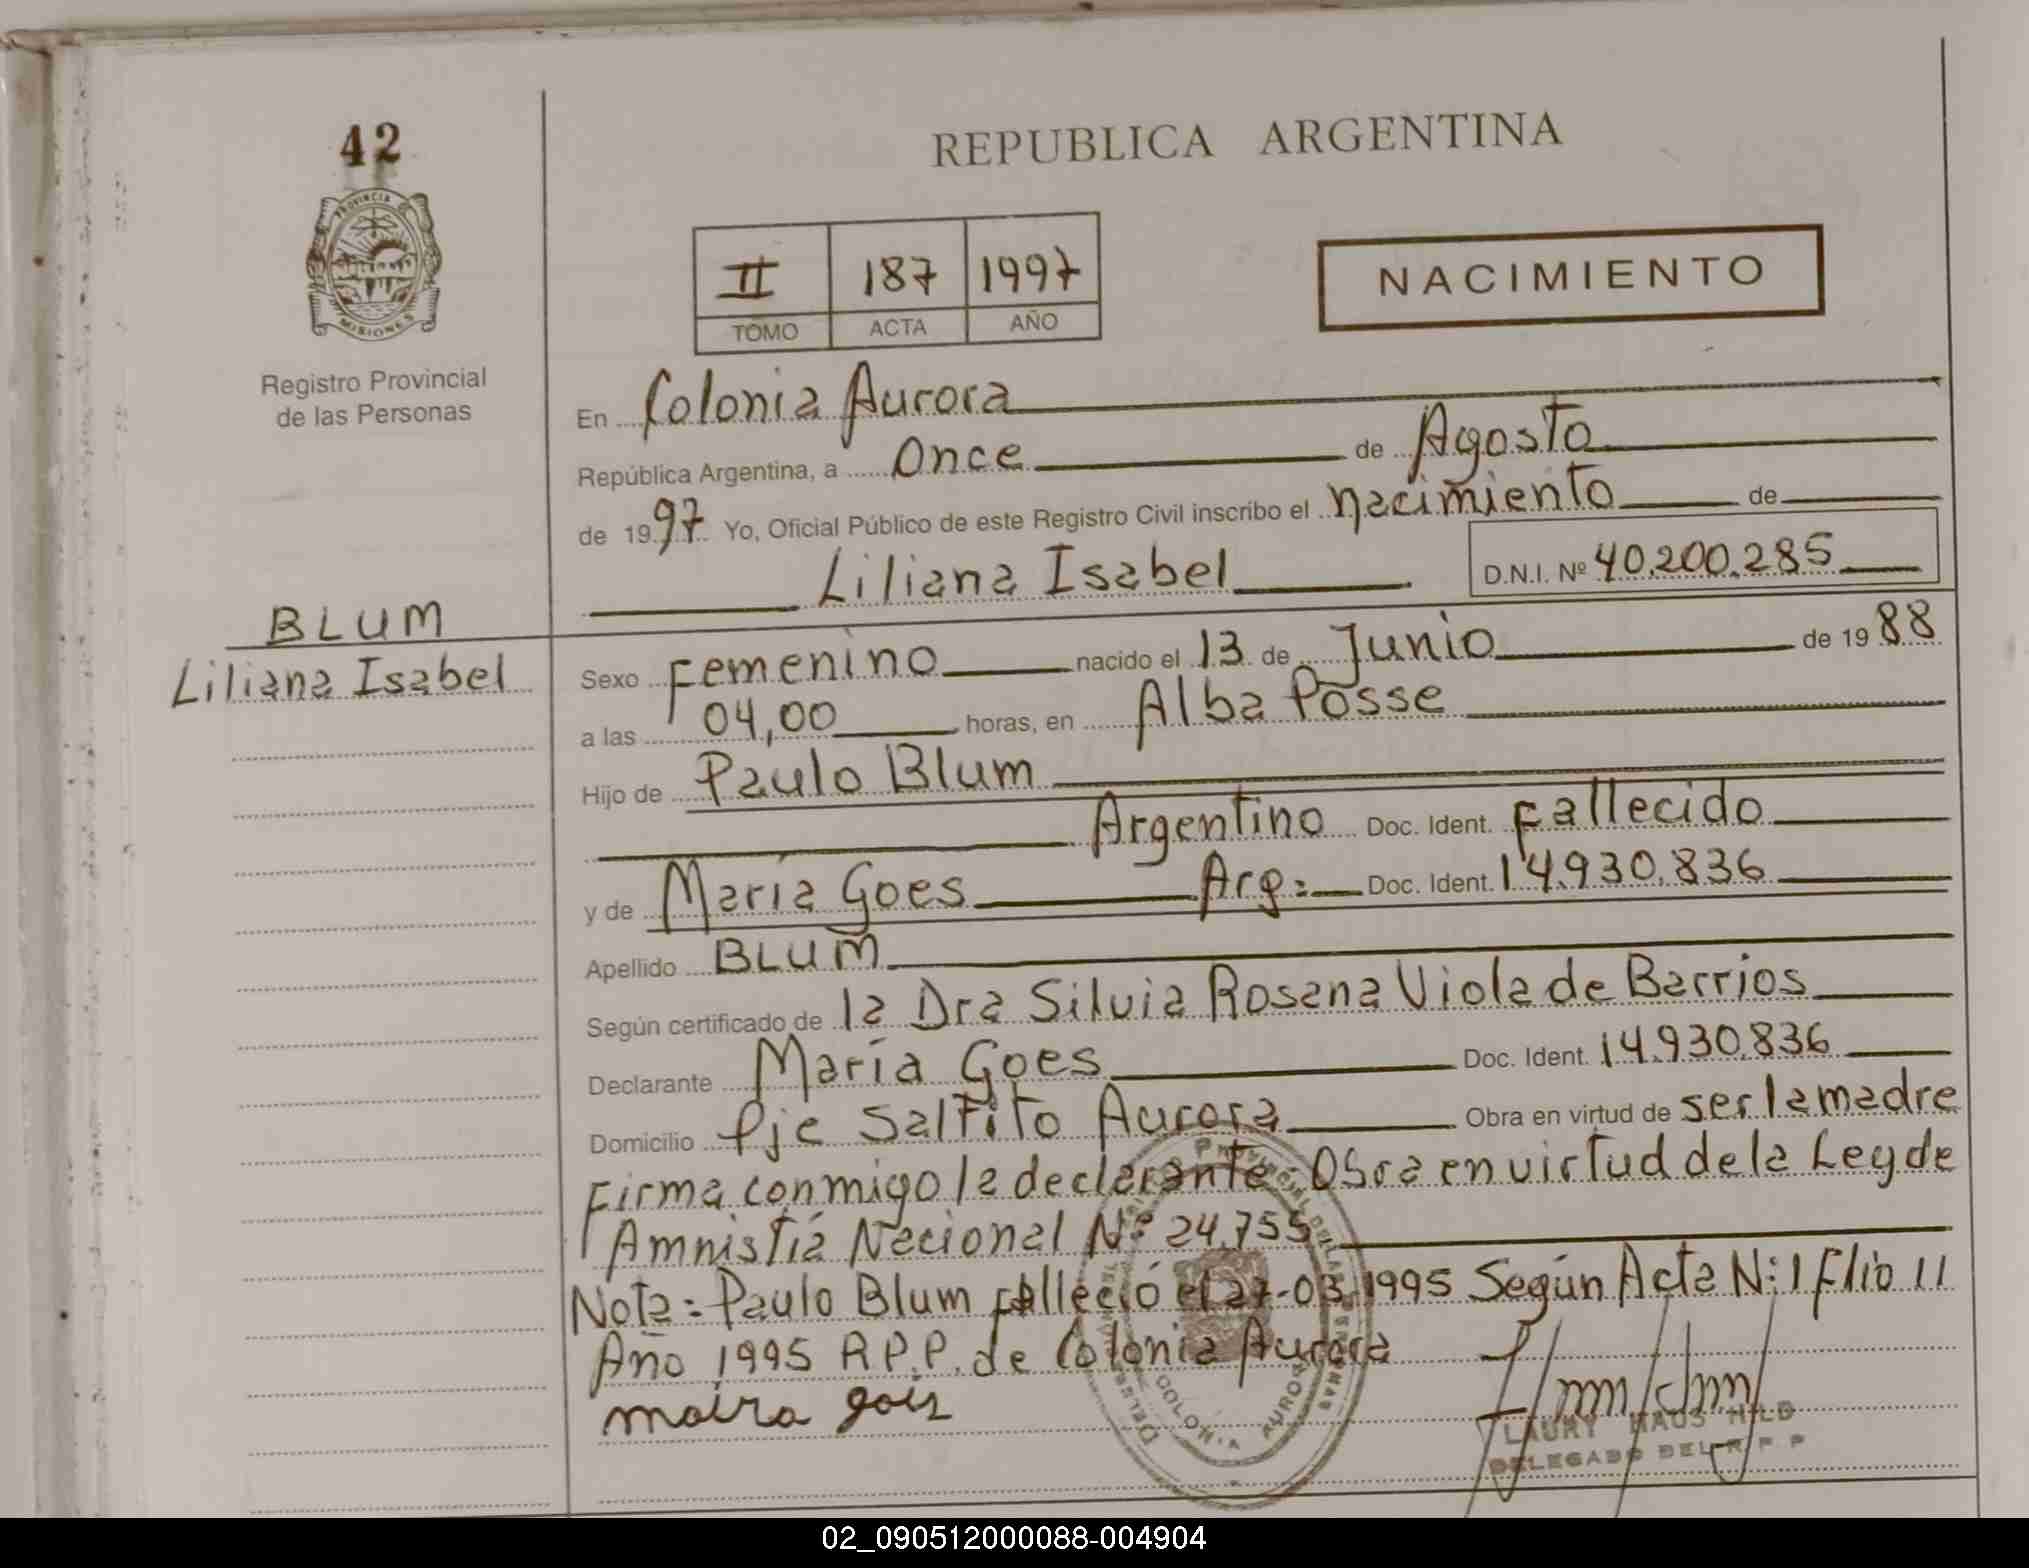 42
REPUBLICA ARGENTINA
PROVINCIA
MISIONES
Registro Provincial
de las Personas
II 187 1997
TOMO ACTA AÑO
NACIMIENTO
En Colonia Aurora
República Argentina, a Once de Agosto
de 1997 Yo, Oficial Público de este Registro Civil inscribo el nacimiento de
Liliana Isabel D.N.I. Nº 40.200.285
BLUM
Liliana Isabel
Sexo Femenino nacido el 13 de Junio de 1988
a las 04,00 horas, en Alba Posse
Hijo de Paulo Blum
Argentino Doc. Ident. fallecido
y de María Goes Arg: Doc. Ident. 14.930.836
Apellido BLUM
Según certificado de la Dra Silvia Rosana Viola de Barrios
Declarante María Goes Doc. Ident. 14.930.836
Domicilio Pje Saltito Aurora Obra en virtud de ser la madre
Firma conmigo la declarante Obra en virtud de la Ley de
Amnistía Nacional Nº 24.755
Nota: Paulo Blum falleció el 27-03-1995 Según Acta N: 1 Flio 11
Año 1995 R.P.P. de Colonia Aurora
maira gois
COLONIA AURORA
LAURY HAUS HILD
DELEGADO DEL R P P
02_090512000088-004904